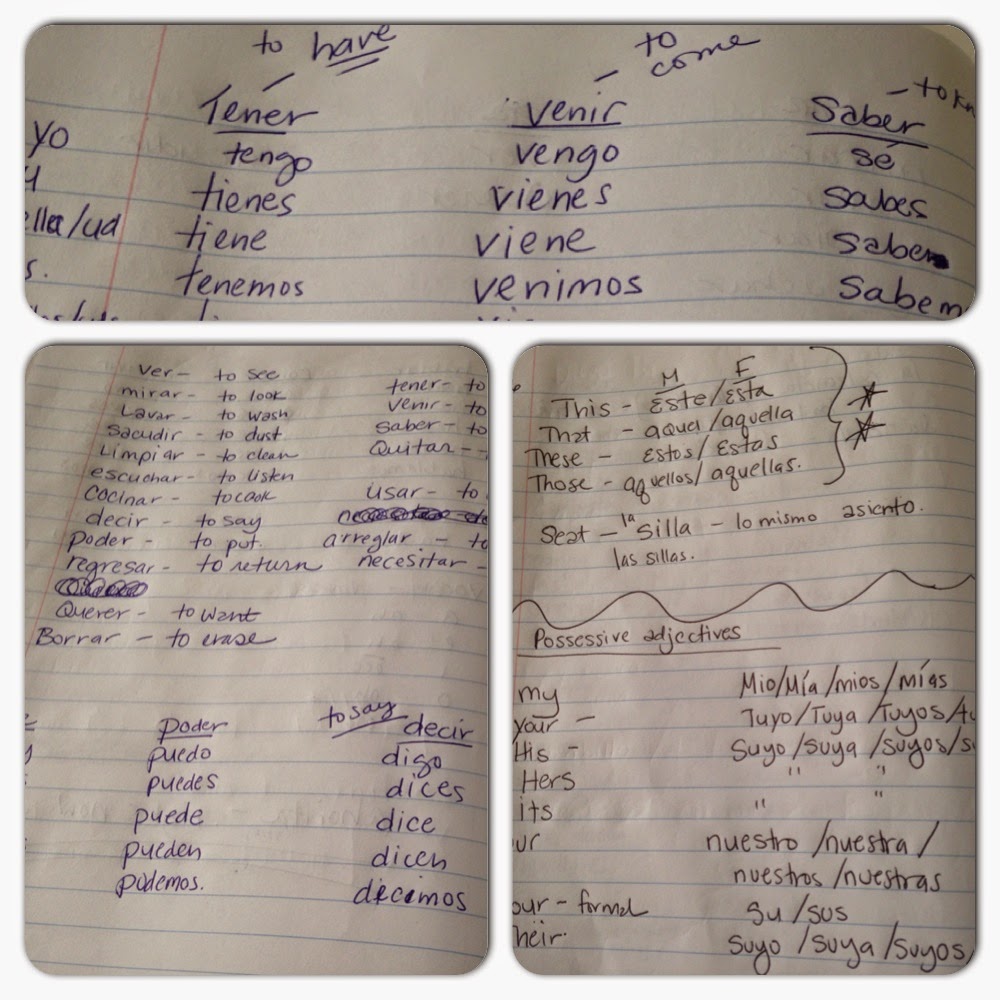 to have to come
Tener venir Saber - to kn
yo tengo vengo sé
tienes vienes sabes
ella/ud tiene viene sabe
s. tenemos venimos Sabem
ver - to see
mirar - to look
Lavar - to wash
Sacudir - to dust
Limpiar - to clean
escuchar - to listen
Cocinar - to cook
decir - to say
Poder - to put.
regresar - to return
Querer - to want
Borrar - to erase
tener - to
venir - to
saber - to
Quitar -
usar - to
arreglar - to
necesitar -
poder to say decir
puedo digo
puedes dices
puede dice
pueden dicen
podemos. decimos
M F
This - Éste/Ésta
That - aquel/aquella
These - Estos/Estas
Those - aquellos/aquellas.
Seat - la silla - lo mismo asiento.
las sillas.
Possessive adjectives
my Mio/Mía/mios/mías
your - Tuyo/Tuya/Tuyos/tu
His - Suyo/suya/suyos/s
Hers " "
its " "
ur nuestro/nuestra/
nuestros/nuestras
our - formal Su/sus
heir. suyo/suya/suyos,